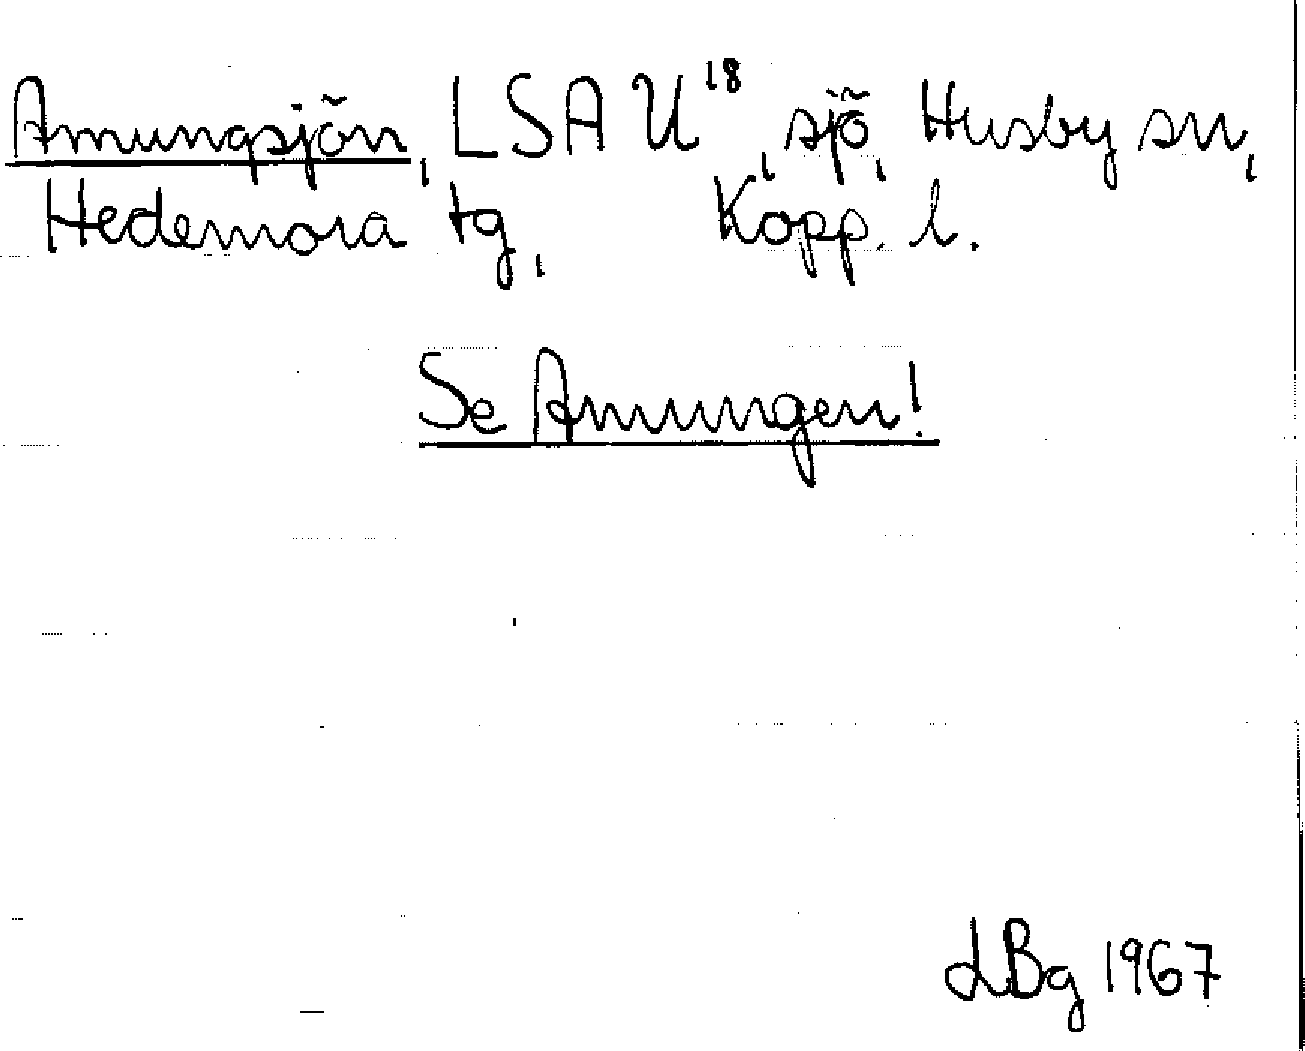 Amungsjön, LSA U¹⁸, sjö, Husby sn,
Hedemora tg, Kopp. l.
Se Amungen!
LBg 1967